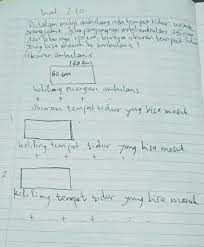 hal 210
Didalam mobil ambulans ada tempat tidur untuk
orang sakit. Jika panjangnya mobil ambulans
dan lebarnya berapa ukuran tempat tidur
yang bisa masuk ke ambulans?
Ukuran ambulans
160 cm
80 cm
keliling ruangan ambulans
+ + + =
ukuran tempat tidur yang bisa masuk
1
keliling tempat tidur yang bisa masuk
+ + + =
2
keliling tempat tidur yang bisa masuk
+ + + =